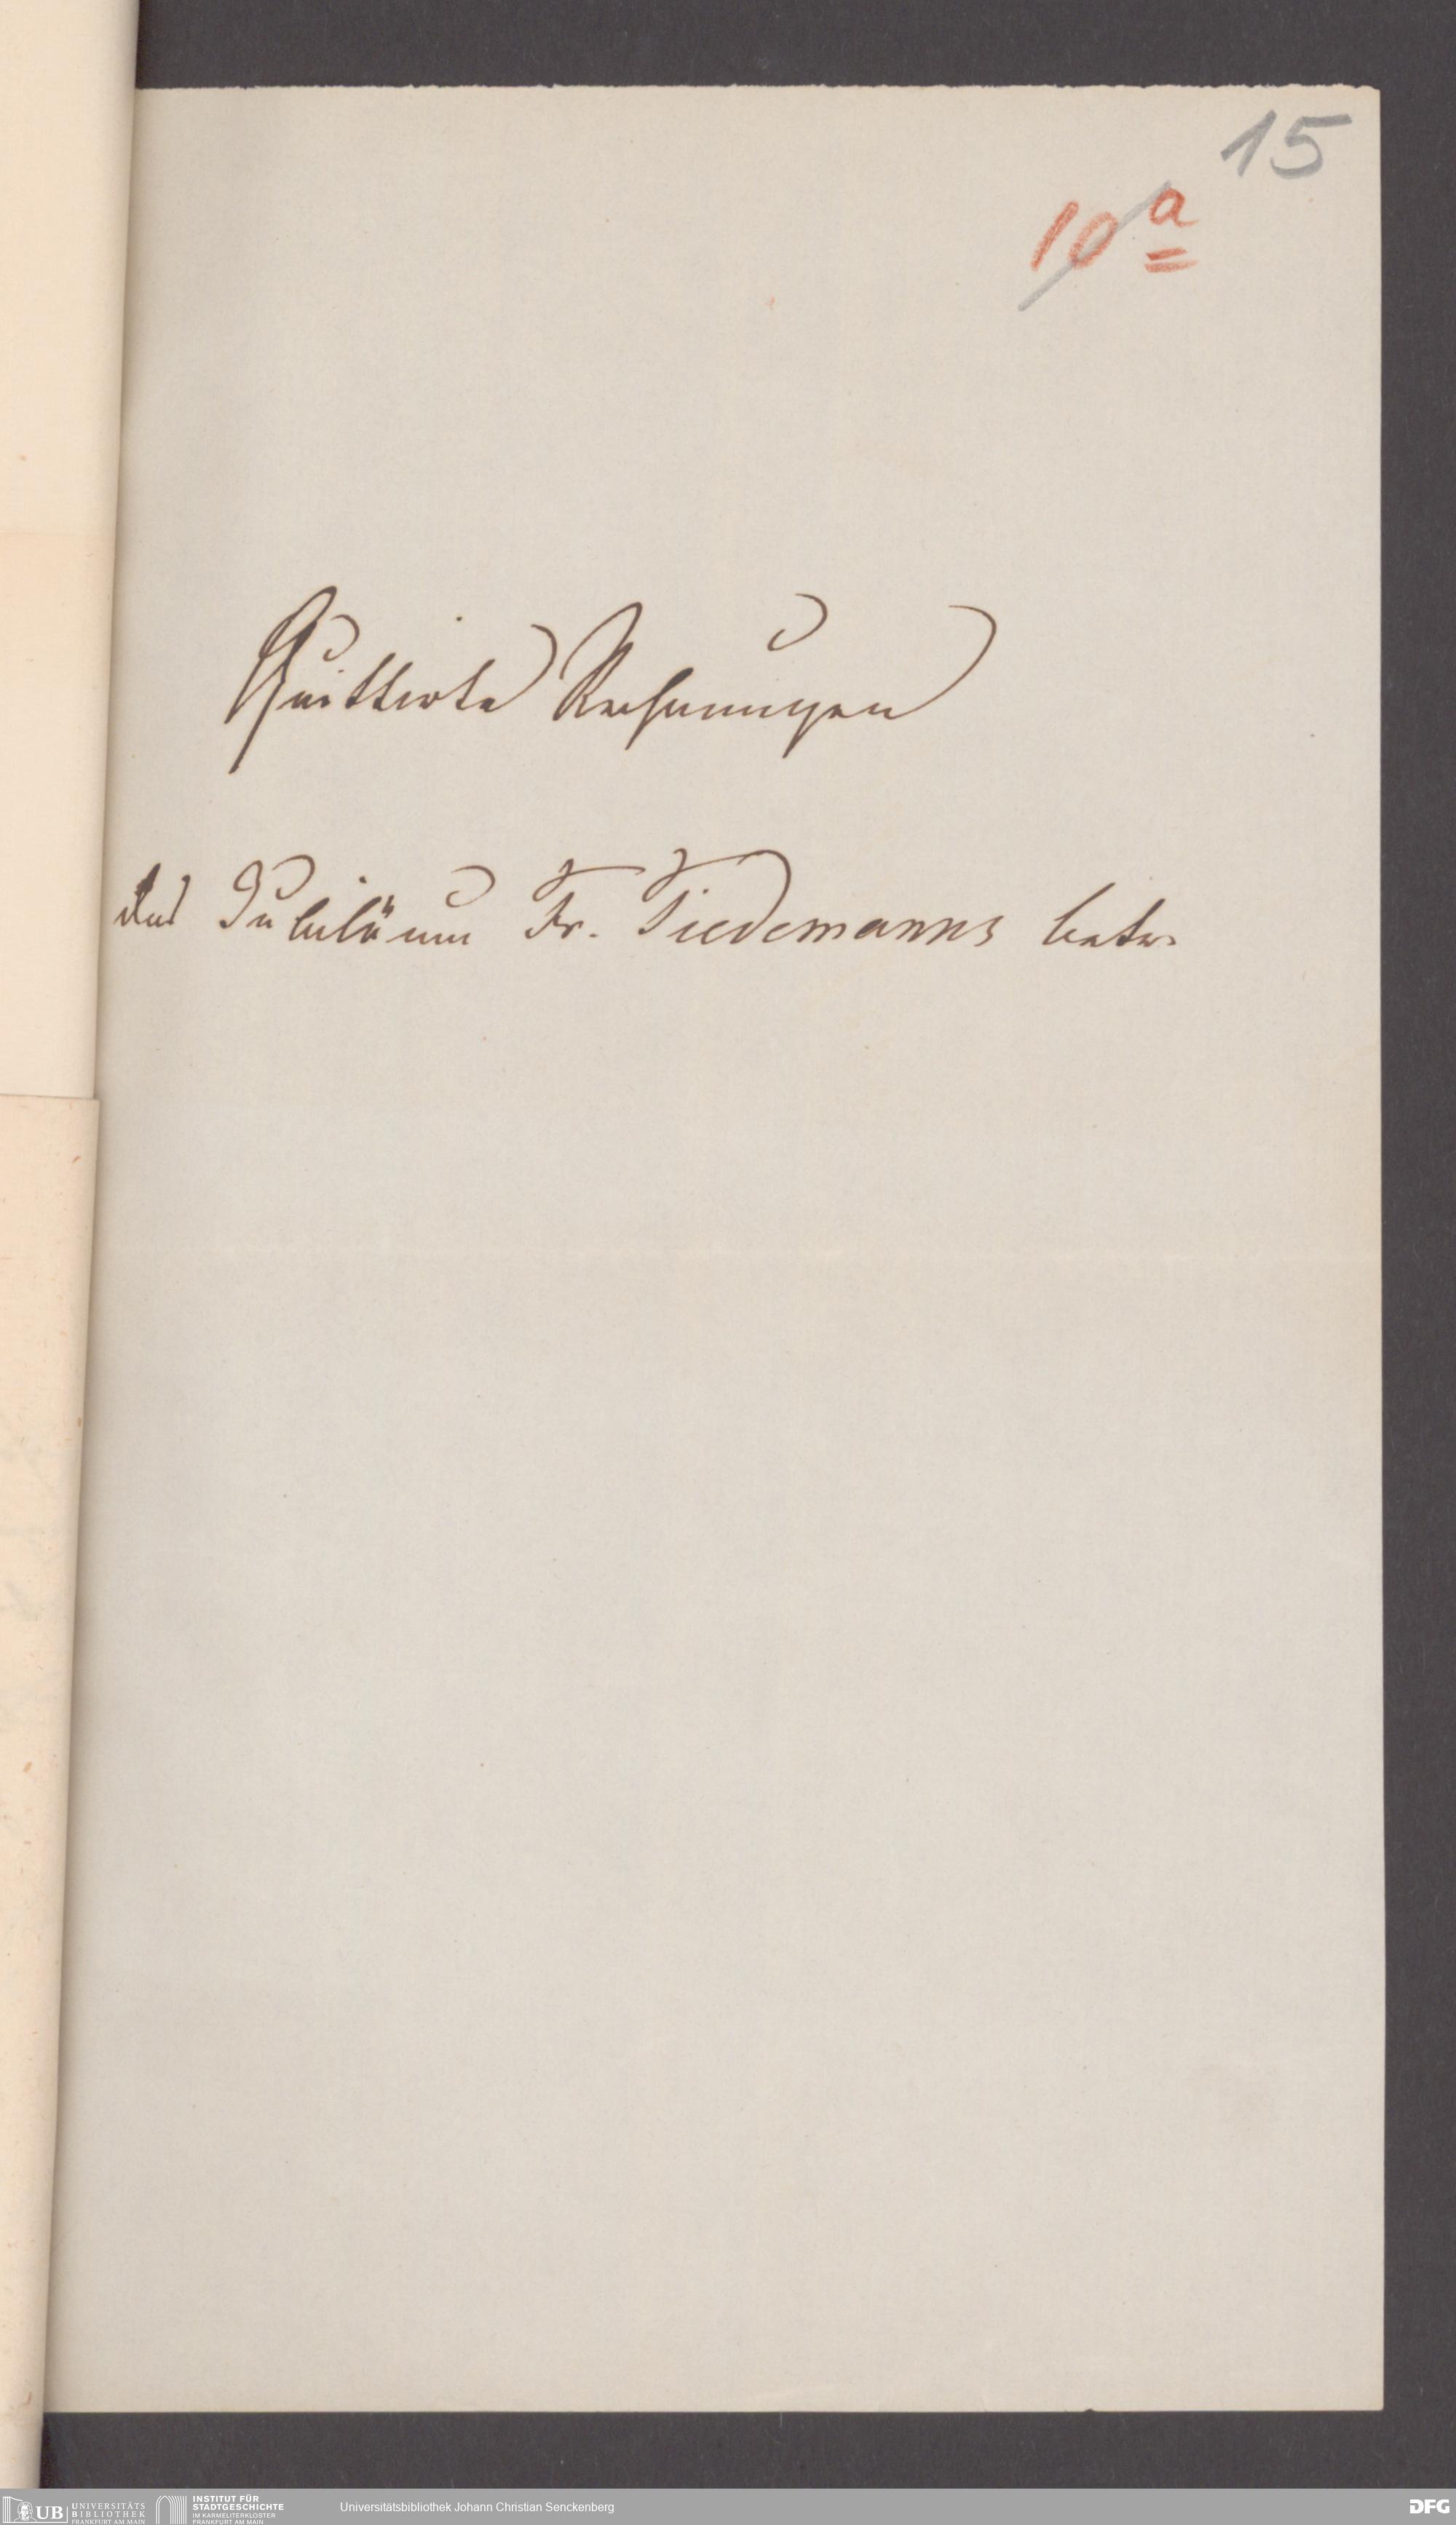 15
10 a
Quittirte Rechnungen
das Jubiläum Fr. Tiedemanns betr.
UB UNIVERSITÄTS BIBLIOTHEK FRANKFURT AM MAIN
INSTITUT FÜR STADTGESCHICHTE IM KARMELITERKLOSTER FRANKFURT AM MAIN
Universitätsbibliothek Johann Christian Senckenberg
DFG